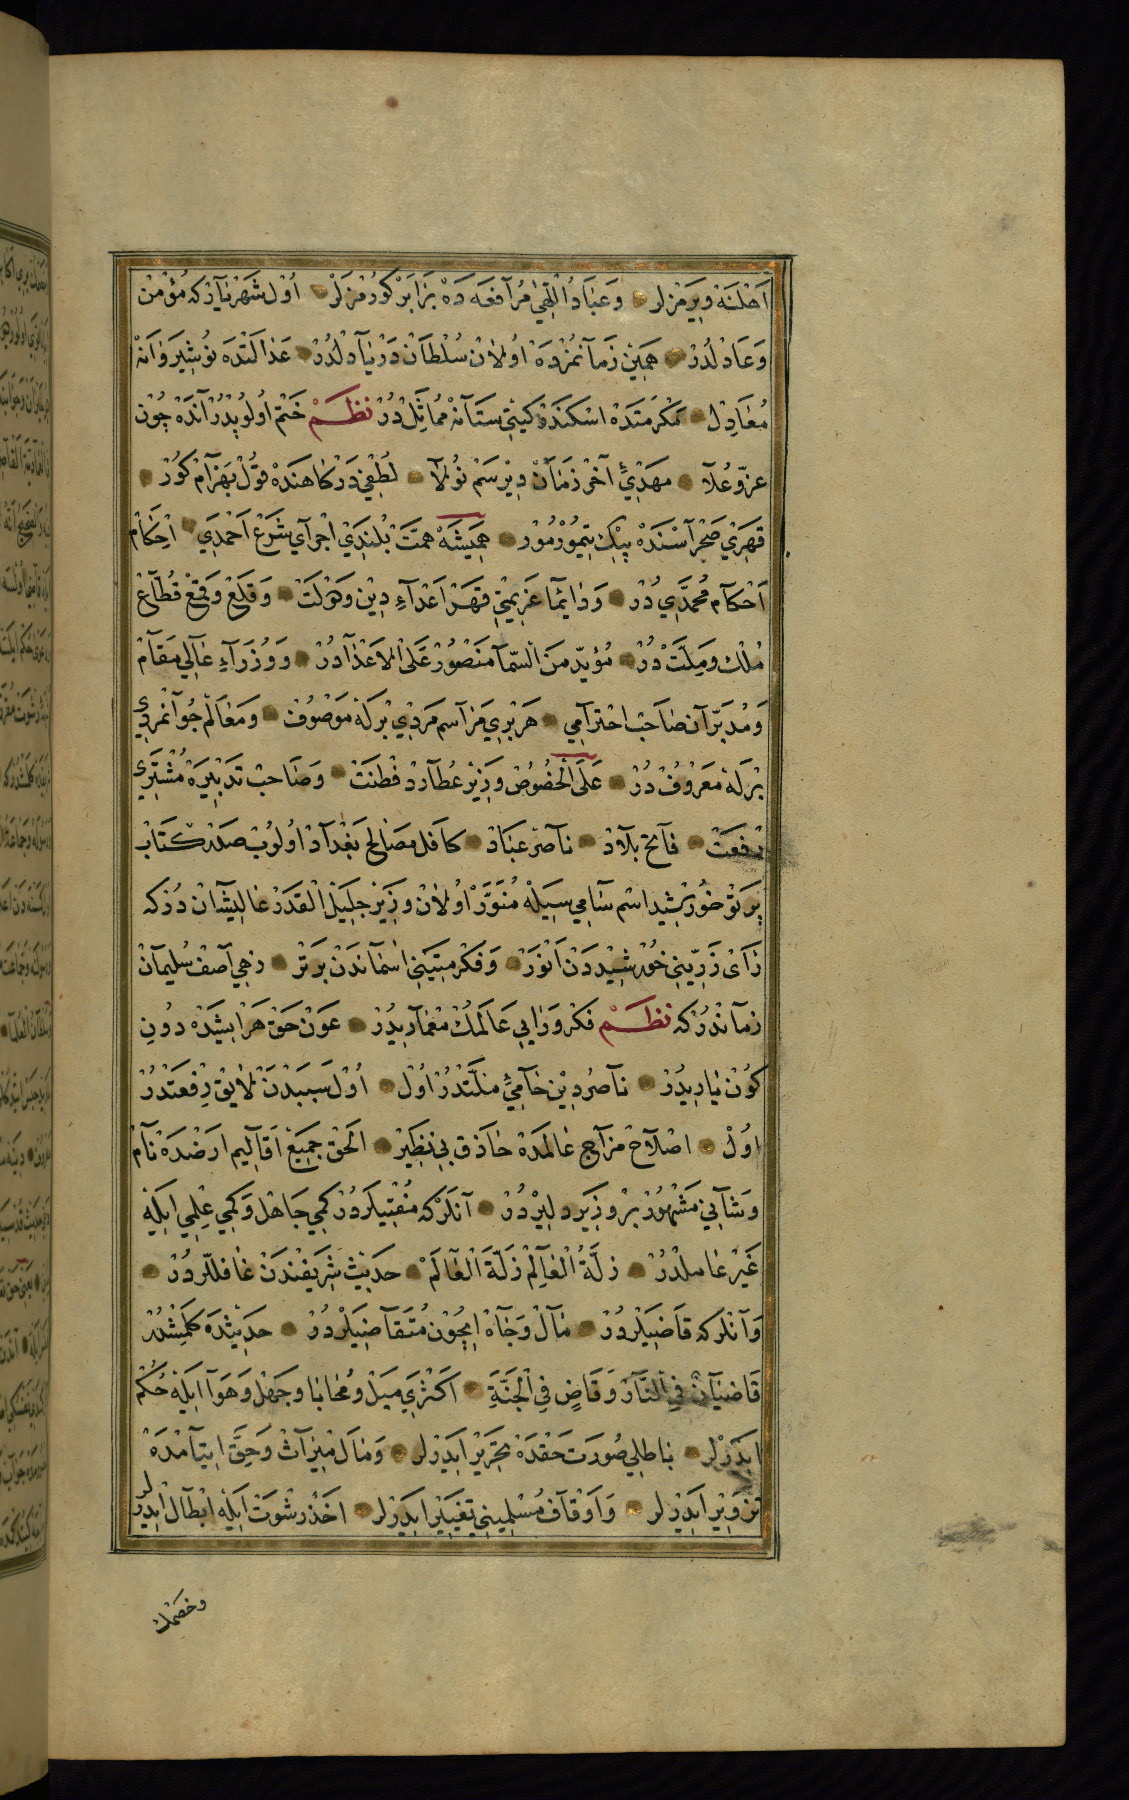 اَهْلنَهْ وِيرَمَزلر وَعبَادُ الٰهِي مُرَآفعَه دَهْ بَرَابَرْ كُورْمَزلَرْ اُوْل شَهْرِيَآرْكه مُؤْمِنْ
وَعَادِلْدُرْ هَمِينْ زَمَآنمُزْدَهْ اُولاَنْ سُلْطَانْ دَرْيَآدِلْدُرْ عَدَالَتْدَه نوُشِيرَوَانَهْ
مُعَادِلْ مَكْرمَتدَهْ اسْكَنْدَرِ كِيتِيسِتَانَهْ مُمَاثِلْ دُرْ نَظَمْ خَتْم اُولُوبْدُرْ آندَهْ چُونْ
عِزّ وعُلآ مَهْدِئ آخْر زَمَانْ دِيرْسَمْ نُولآ لُطْفِي دَرْكَاهنْدَهْ قُولْ بَهْرَآم كُورْ
قَهرِي صَحْرَآسْنْدَهْ بِيكْ تِيمُورْ مُورْ هَمِيشَهْ همَّتْ بُلَنْدِي اجْرآي شَرْع اَحْمَدِي احْكَامْ
اَحْكَام مُحَمَّدِي دُرْ وَدَائِمَا عَزِيمَتِي قَهْر اَعْدَآءِ دِينْ وَدَوْلَتْ وَقَلْعْ وَقَمْعْ قُطَّاعْ
مُلْك وَمِلَّتْ دُرْ مُؤَيَّدْ مِنَ السَّمَآ مَنْصُورْ عَلَى الاَعْدَآدُرْ وَوُزَرَآءِ عَالِي مَقَآمْ
وَمُدَبِّرَآن صَاحِبْ احْتِرَآمِي هَر بِرِي مَرَآسِم مَرْدِي بِرلَهْ مَوْصُوفْ وَمَعَالِم جُوَآنْمَرْدِي
بِرْلَهْ مَعْرُوفْ دُرْ عَلَى الْخُصُوصْ وَزِيرِ عُطَآرِدْ فِطْنَتْ وَصَاحِبْ تَدْبِيرَهْ مُشْتَرِي
رِفْعَتْ فَآتِح بلَآدْ نَآصِر عِبَادْ كَافِل مَصَالِح بَغْدَآدْ اُولُوبْ صَدْر كتَابْ
پَرتَوْ خُورْشِيد اسْم سَامِي سِيلَهْ مُنَوَّرْ اُولاَنْ وَزِير جَلِيلْ الْقَدْر عَالِيشَانْ دُرْكه
رَاىْ زَرِّينِي خُورْشِيدْدَنْ اَنْوَرْ وَفِكْر مَتِينِي اسْمآندَنْ بَرتَرْ زهِي آصَف سُلَيمَآنْ
زمَآندُرْكه نَظَمْ فِكْر وَرَايِي عَالَمُكْ مِعْمَآرِيدُرْ عَوْنِ حَقْ هَر ايشِدَهْ دُونِ
كُونْ يَارِيدُرْ نَآصِرُ دِينْ حَامِئ مِلَّتْدُرْ اُولْ اُولْ سَبَبْدَنْ لاَيق رِفْعَتْدُرْ
اُولْ اصْلآح مِزَآجِ عَالَمدَهْ حَاذِق بِي نَظِيرْ اَلْحَقْ جَمِيع اَقَآلِيم ارْضدَهْ نَآمْ
وَشَآنِي مَشْهُورْ بِر وَزِير دلِيرْدُرْ آنلَرْكه مُفْتِيلَردُرْ كِمي جَاهِل وَكِمي عِلْمي ايلَهْ
غَيْر عَاملْدُرْ زلَّةُ الْعَآلِمْ زَلَّةُ الْعَآلَمْ حَدِيث شَرِيفنْدَنْ غَافِللَردُرْ
وَآنلَرْكه قَاضِيلَرْدُرْ مَآلْ وَجَاهْ ايچُونْ مُتَقَاضِيلَرْدُرْ حَدِيثدَه كلْمِشدُرْ
قَاضِيَآنْ فِي النَّآر وَقَاضٍ فِي الْجَنَّةِ اَكثَرِي مَيلْ وَمُحَابَا وَجَهْل وَهَوَآ ايلَهْ حُكْم
ايدَرْلر بَاطِلِي صُورَت حَقدَهْ تَحْرِير ايدَرْلر وَمَال مِيرَآثْ وَحَقّ ايتَآمدَهْ
تَزْوِير ايدَرْلر وَاَوْقَآف مُسْلمِيني تَغْيِير ايدَرْلر اخْذ رِشْوَتْ ايلَهْ ابْطَال ايدَرلر
وخصمك